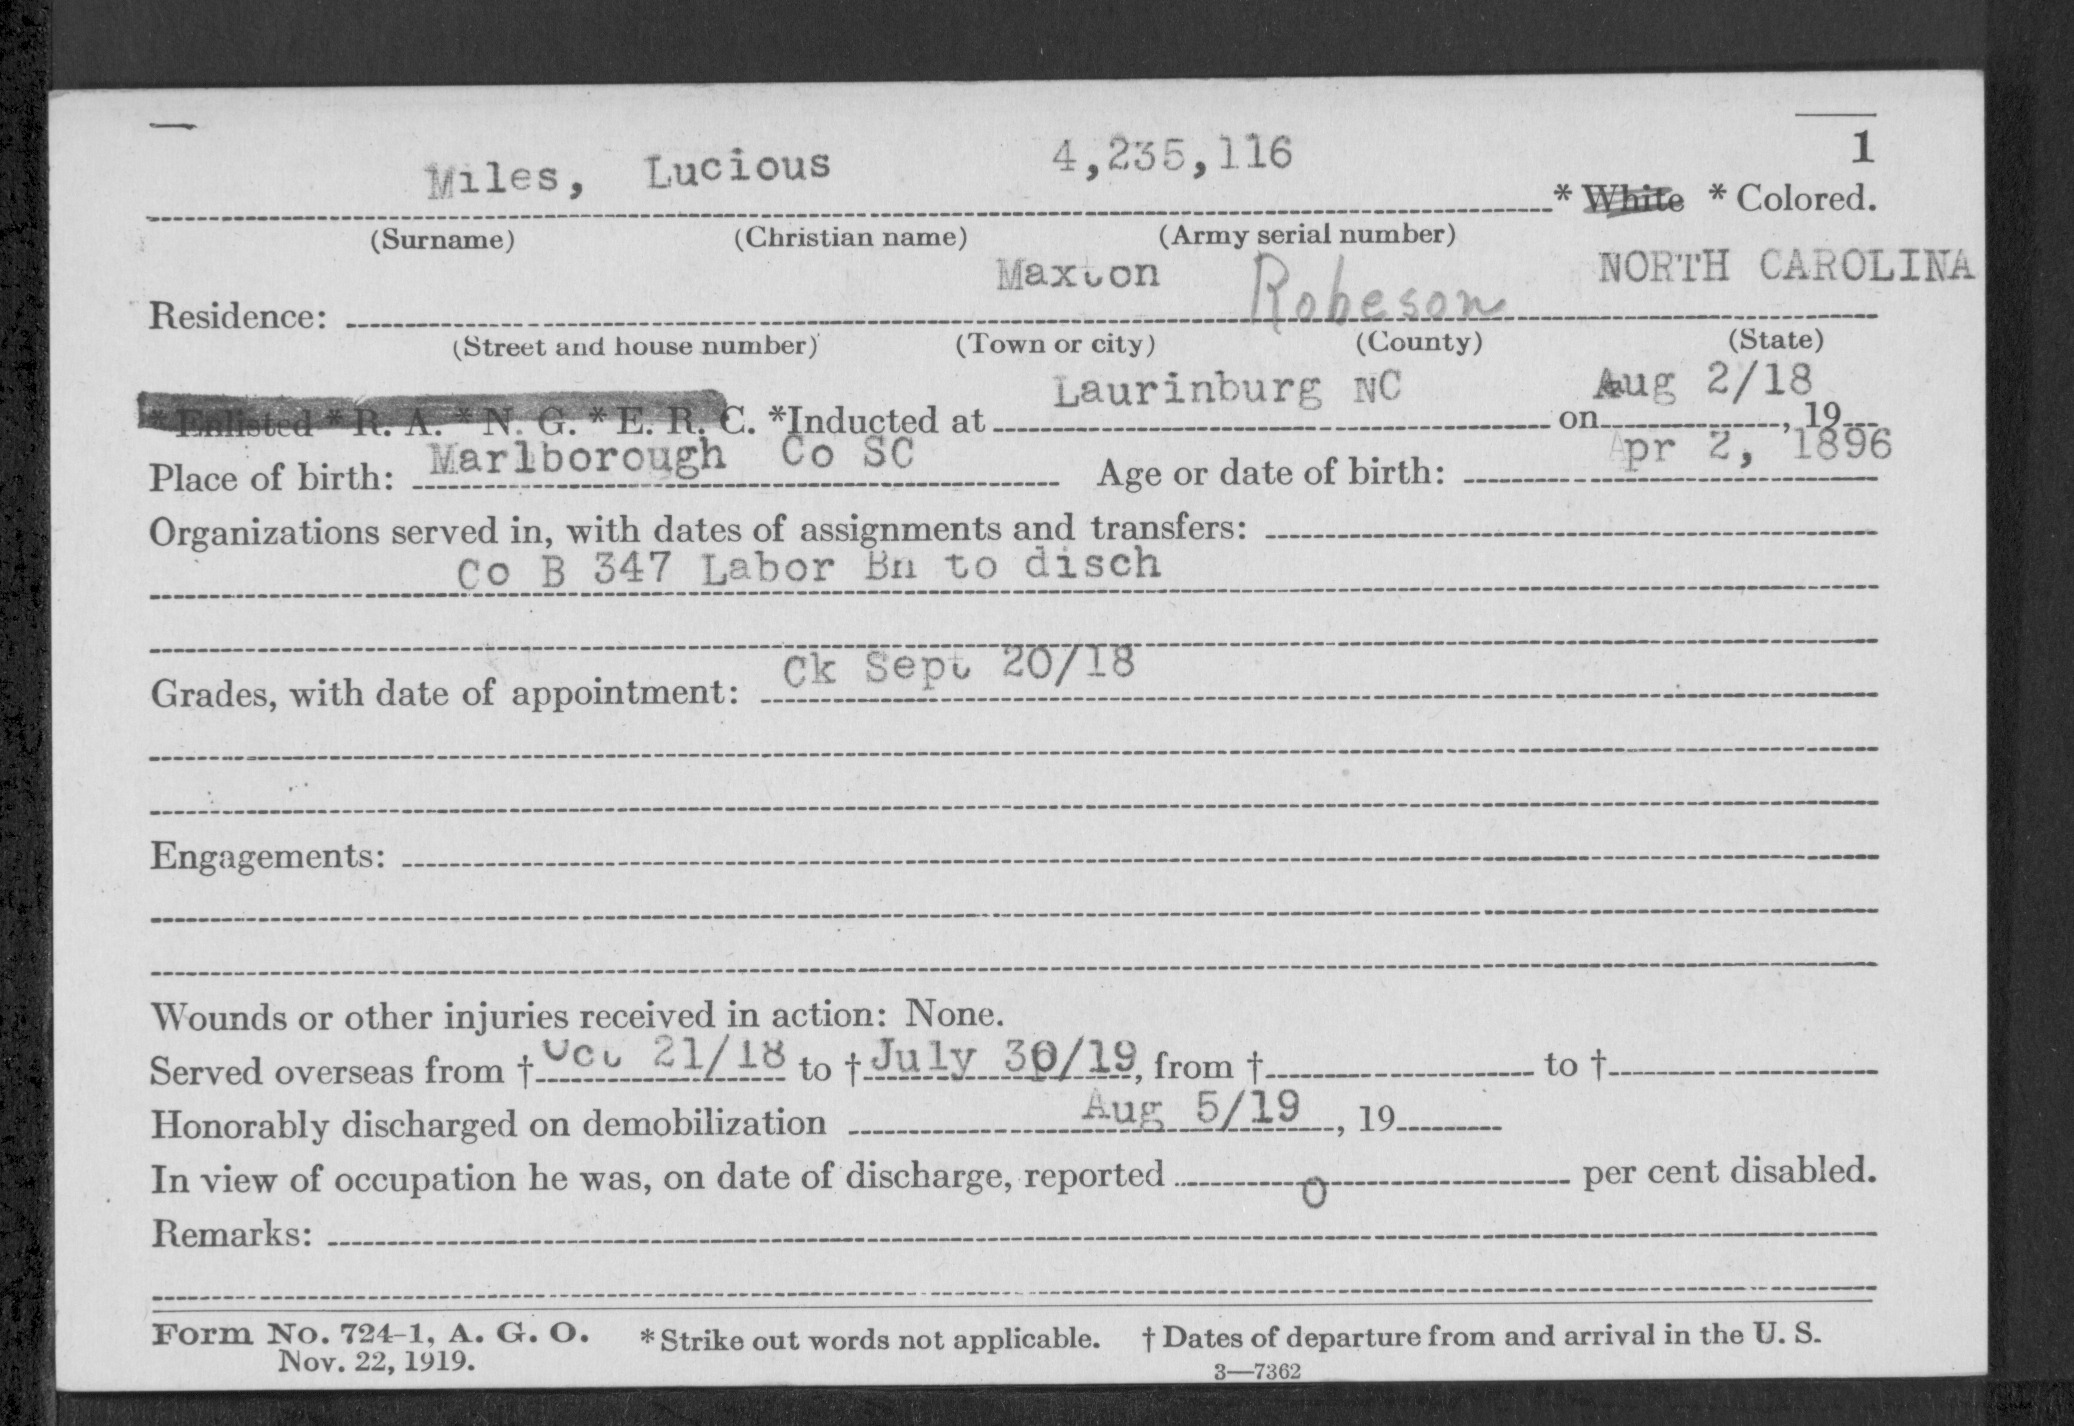 1
Miles, Lucious 4,235,116 * White * Colored.
(Surname) (Christian name) (Army serial number)
Maxton Robeson NORTH CAROLINA
Residence:
(Street and house number) (Town or city) (County) (State)
Laurinburg NC Aug 2/18
* Enlisted * R. A. * N. G. * E. R. C. *Inducted at on , 19
Marlborough Co SC Apr 2, 1896
Place of birth: Age or date of birth:
Organizations served in, with dates of assignments and transfers:
Co B 347 Labor Bn to disch
Ck Sept 20/18
Grades, with date of appointment:
Engagements:
Wounds or other injuries received in action: None.
Served overseas from † Oct 21/18 to † July 30/19, from † to †
Honorably discharged on demobilization Aug 5/19, 19
In view of occupation he was, on date of discharge, reported 0 per cent disabled.
Remarks:
Form No. 724-1, A. G. O. * Strike out words not applicable. † Dates of departure from and arrival in the U. S.
Nov. 22, 1919. 3—7362